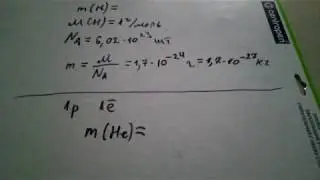 m(H)=
M(H)=1г/моль
N_A=6,02·10²³ шт
m = M/N_A = 1,7·10⁻²⁴ г = 1,7·10⁻²⁷ кг
1p 1ē
m(He)=